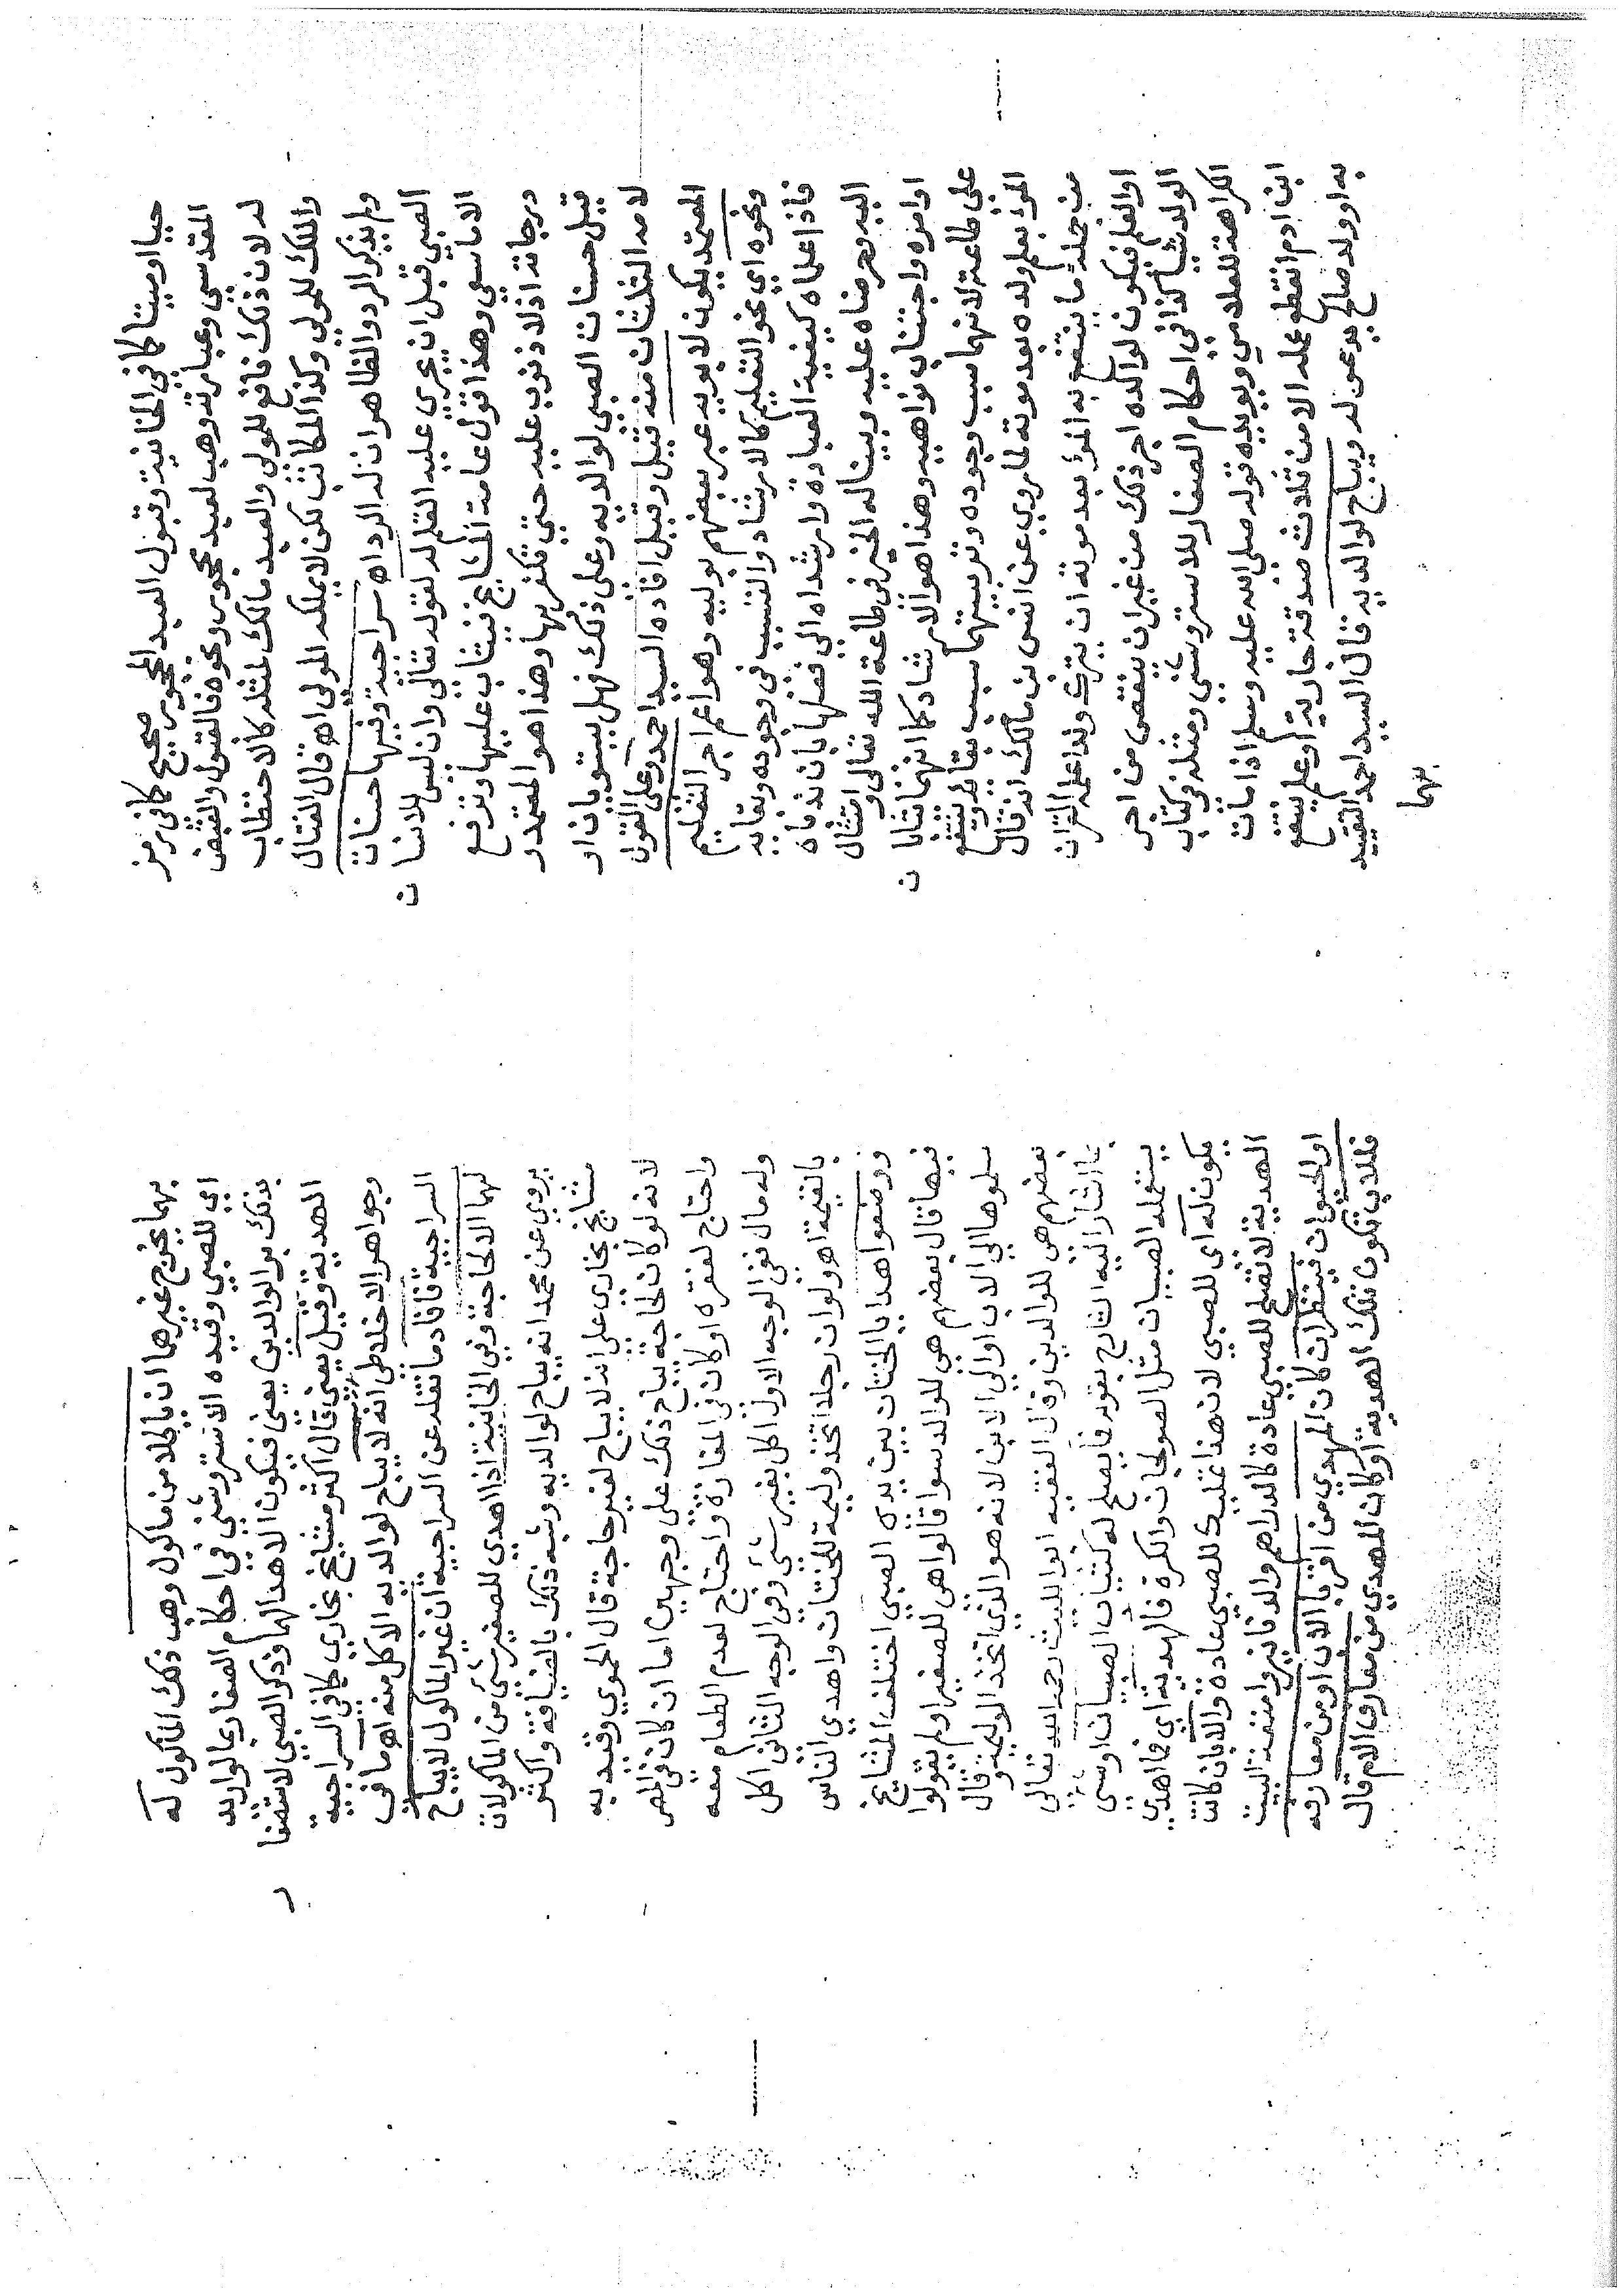 حيا او ميتا كما في الخانية وقبول العبد المحجور صحيح كما في رمز
المقدسي وعبارته وهب لعبد محجور ونحوه فالقبول والقبض
له لان ذلك نافع للمولى والعبد مالك لمثله كالاحتطاب
والملك للمولي وكذا المكاتب لكن لا يملكه المولى اه قال الفتال
ولم يذكر الرد والظاهر ان له الرد اه سراجية وفيها حسنات
الصبي قبل ان يجري عليه القلم له لقوله تعالى وان ليس للانسا ن
الا ما سعي وهذا قول عامة المشايخ فيثاب عليها وترفع
درجاته اذ لا ذنوب عليه حتي تكفر بها وهذا هو المعتمد و
قيل حسنات الصبي لوالديه وعلى ذلك فهل يستويان او
لامه الثلثان منه قيل وقيل افاده السيد احمد وعلى القول
المعتمد يكون لا بويه عبر بعضهم بوليه وهو اعم اجر التعليم
ونحوه اي نحو التعليم كالارشاد والتسبب في وجوده وبقايه
فاذا علماه كيفية العبادة وارشداه الي فعلها بان ندباه
اليه وحرضاه عليه وبينا له الخير في طاعة الله تعالى وامتثال
اوامره واجتناب نواهيه وهذا هو الارشاد كما انهما يثابا ن
على طاعته لانهما سبب وجوده وتربيتهما سبب بقايه وينتفع
المؤ بعلم ولده بعد موته لما روي عن انس بن مالك انه قال
من جملة ما ينتفع به المؤ بعد موته ان يترك ولدا علمه القران
او العلم فيكون لوالده اجر ذلك من غير ان ينقص من اجر
الولد شيا كذا في احكام الصغار للاستروشني ومثله في كتاب
الكراهة للعلامي ويويده قوله صلى الله عليه وسلم اذا مات
ابن ادم انقطع عمله الا من ثلاث صدقة جارية او علم ينتفع
به او ولد صالح يدعو له ويباح لوالديه قال السيد احمد التقييد
بهما
بهما يخرج غيرهما ان ياكلا من ماكول وهب ذلك الماكول له
اي للصبي وقيده الاستروشني في احكام الصغار بما لو اريد
بذلك بر الوالدين يعني فيكون الاهدا لهما وذكر الصبي لاستصغا ر
الهدية وقيل يعني قال اكثر مشايخ بخاري كما في السراجية
وجواهر الاخلاطي انه لا يباح لوالديه الاكل منه اه ما في
السراجية فافاد ما نقله عن السراجية ان غير الماكول لا يباح
لهما الا لحاجة وفي الخانية اذا اهدي للصغير شي من الماكولات
يروي عن محمد انه يباح لوالديه وشبه ذلك بالضيافة واكثر
مشايخ بخاري علي انه لا يباح لغير حاجة قال الحموي وقيد به
لانه لو كان لحاجة يباح ذلك علي وجهين اما ان كان في المصر
واحتاج لفقره او كان في المفازة واحتاج لعدم الطعام معه
وله مال ففي الوجه الاول اكل بغير شي وفي الوجه الثاني اكل
بالقيمة اه ولو ان رجلا اتخذ وليمة للختان واهدي الناس
ووضعوا هدايا الختان بين يدي الصبي اختلف المشايخ
فيها قال بعضهم هي للوالد سوا قالوا هي للصغير او لم يقولوا
سلموها الي الاب او الي الابن لانه هو الذي اتخذ الوليمة وقال
بعضهم هي للوالدين وقال الفقيه ابو الليث رحمه الله تعالي
ما اشار اليه الشارح بقوله فما يصلح له كثياب الصبيان او شي
يستعمله الصبيان مثل الصولجان والكرة فالهدية اي فما اهدي
يكون له اي للصبي لان هذا تمليك للصبي عادة والا بان كانت
الهدية لا تصلح للصبي عادة كالدراهم والدنانير وامتعة البيت
او الحيوان فينظر ان كان المهدي من اقربا الاب او من معارفه
فللاب تكون تلك الهدية او كان المهدي من معارف الام قال